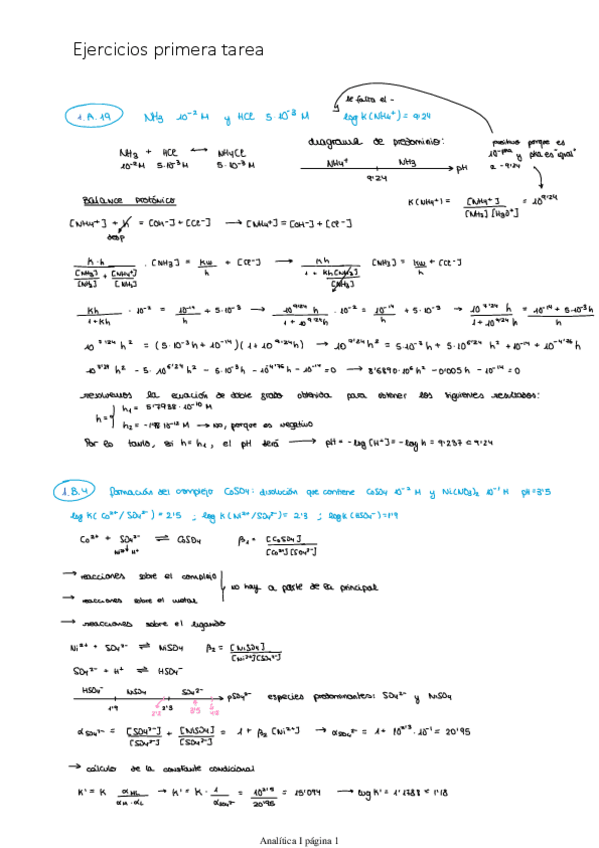 Ejercicios primera tarea
se falta el -
1.A.19 NH3 10⁻² M y HCl 5·10⁻³ M log K(NH4⁺) = 9'24
NH3 + HCl ⟷ NH4Cl
10⁻² M 5·10⁻³ M 5·10⁻³ M
diagrama de predominio:
NH4⁺ NH3 pH
9'24
positivo porque es
10^-pka y pka es "igual"
a -9'24
K(NH4⁺) = [NH4⁺] / [NH3][H3O⁺] = 10^9'24
Balance protónico
[NH4⁺] + h = [OH-] + [Cl-] ⟶ [NH4⁺] = [OH-] + [Cl-]
desp
K·h / ([NH3]/[NH3] + [NH4⁺]/[NH3]) · [NH3] = Kw/h + [Cl-] ⟶ Kh / (1 + Kh[NH3]/[NH3]) [NH3] = Kw/h + [Cl-]
Kh/(1+Kh) · 10⁻² = 10⁻¹⁴/h + 5·10⁻³ ⟶ 10^9'24 h/(1 + 10^9'24 h) · 10⁻² = 10⁻¹⁴/h + 5·10⁻³ → 10^7'24 h/(1 + 10^9'24 h) = (10⁻¹⁴ + 5·10⁻³ h)/h
10^7'24 h² = (5·10⁻³h + 10⁻¹⁴)(1 + 10^9'24 h) → 10^7'24 h² = 5·10⁻³ h + 5·10^6'24 h² + 10⁻¹⁴ + 10^-4'76 h
10^7'24 h² - 5·10^6'24 h² - 5·10⁻³ h - 10^-4'76 h - 10⁻¹⁴ = 0 ⟶ 8'6890·10⁶ h² - 0'005 h - 10⁻¹⁴ = 0
resolvemos la ecuación de doble grado obtenida para obtener los siguientes resultados:
h = h1 = 5'7938·10⁻¹⁰ M
h2 = -1'98·10⁻¹² M → No, porque es negativo
Por lo tanto, si h = h1, el pH será ⟶ pH = -log [H⁺] = -log h = 9'237 < 9'24
1.B.4 formación del complejo CoSO4: disolución que contiene CoSO4 10⁻² M y Ni(NO3)2 10⁻¹ M pH = 3'5
log K(Co²⁺/SO4²⁻) = 2'5 ; log K(Ni²⁺/SO4²⁻) = 2'3 ; log K(HSO4⁻) = 1'9
Co²⁺ + SO4²⁻ ⇌ CoSO4 β1 = [CoSO4] / [Co²⁺][SO4²⁻]
Ni²⁺ H⁺
→ reacciones sobre el complejo
no hay a parte de la principal
→ reacciones sobre el metal
→ reacciones sobre el ligando
Ni²⁺ + SO4²⁻ ⇌ NiSO4 β2 = [NiSO4] / [Ni²⁺][SO4²⁻]
SO4²⁻ + H⁺ ⇌ HSO4⁻
HSO4⁻ NiSO4 SO4²⁻ pSO4²⁻ especies predominantes: SO4²⁻ y NiSO4
1'9 2'3
αSO4²⁻ = [SO4²⁻]/[SO4²⁻] + [NiSO4]/[SO4²⁻] = 1 + β2 [Ni²⁺] → αSO4²⁻ = 1 + 10^2'3 · 10⁻¹ = 20'95
→ cálculo de la constante condicional
K' = K αML/(αM·αL) → K' = K · 1/αSO4²⁻ = 10^2'5/20'95 = 15'094 ⟶ log K' = 1'1788 ≈ 1'18
Analítica I página 1